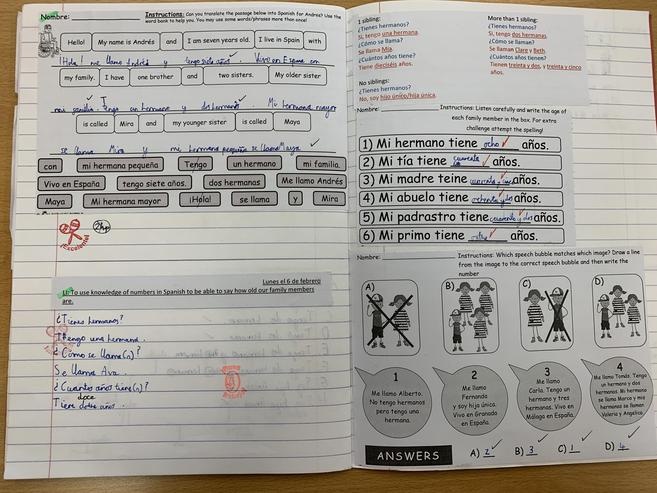 Nombre:
Instructions: Can you translate the passage below into Spanish for Andres? Use the
word bank to help you. You may use some words/phrases more than once!
Hello! My name is Andrés and I am seven years old. I live in Spain with
¡Hola! me llamo Andrés y tengo siete años. Vivo en España con
my family. I have one brother and two sisters. My older sister
mi familia. Tengo un hermano y dos hermanas. Mi hermana mayor
is called Mira and my younger sister is called Maya
se llama Mira y mi hermana pequeña se llama Maya
con mi hermana pequeña Tengo un hermano mi familia.
Vivo en España tengo siete años. dos hermanas Me llamo Andrés
Maya Mi hermana mayor ¡Hola! se llama y Mira
¡Excelente!
Lunes el 6 de febrero
LI: To use knowledge of numbers in Spanish to be able to say how old our family members
are.
¿Tienes hermanos?
Tengo una hermana.
¿Cómo se llama(n)?
Se llama Ava.
¿Cuántos años tiene(n)?
doce
Tiene años.
1 sibling:
¿Tienes hermanos?
Sí, tengo una hermana.
¿Cómo se llama?
Se llama Mia.
¿Cuántos años tiene?
Tiene dieciséis años.
No siblings:
¿Tienes hermanos?
No, soy hijo único/hija única.
More than 1 sibling:
¿Tienes hermanos?
Sí, tengo dos hermanas.
¿Cómo se llaman?
Se llaman Clare y Beth.
¿Cuántos años tienen?
Tienen treinta y dos, y treinta y cinco
años.
Nombre:
Instructions: Listen carefully and write the age of
each family member in the box. For extra
challenge attempt the spelling!
1) Mi hermano tiene ocho años.
2) Mi tía tiene años.
3) Mi madre teine años.
4) Mi abuelo tiene años.
5) Mi padrastro tiene años.
6) Mi primo tiene años.
Nombre:
Instructions: Which speech bubble matches which image? Draw a line
from the image to the correct speech bubble and then write the
number
A) B) C) D)
1
Me llamo Alberto.
No tengo hermanos
pero tengo una
hermana.
2
Me llamo
Fernanda
y soy hija única.
Vivo en Granada
en España.
3
Me llamo
Carla. Tengo
un hermano y
tres hermanas. Vivo en
Málaga en España.
4
Me llamo Tomás. Tengo
un hermano y dos
hermanas. Mi hermano
se llama Marco y mis
hermanas se llaman
Valeria y Angelica.
ANSWERS A) 2 B) 3 C) 1 D) 4